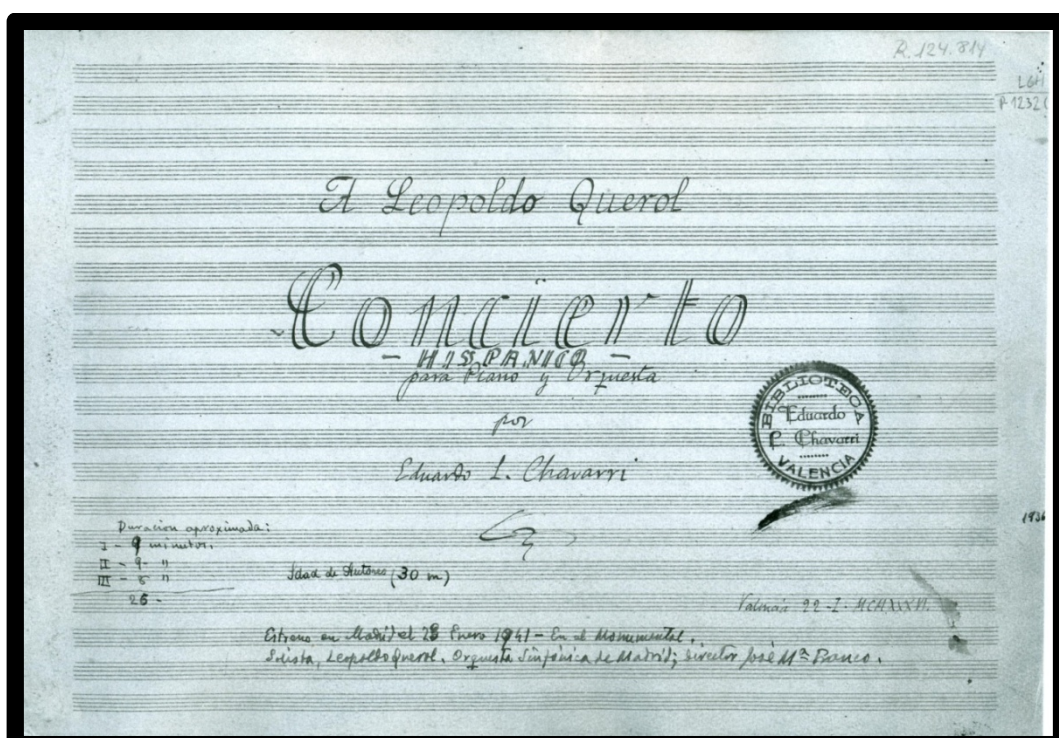 R.124.814
A Leopoldo Querol
Concierto
- HISPANICO -
para Piano y Orquesta
por
Eduardo L. Chavarri
BIBLIOTECA
Eduardo
L. Chavarri
VALENCIA
Duración aproximada:
I - 9 minutos.
II - 9 - "
III - 8 "
26 -
Sdad de Autores (30 m)
1936
Valencia 22-I-MCMXXXVI.
Estreno en Madrid el 28 Enero 1941 - En el Monumental.
Solista, Leopoldo Querol. Orquesta Sinfónica de Madrid; director José Mª Franco.